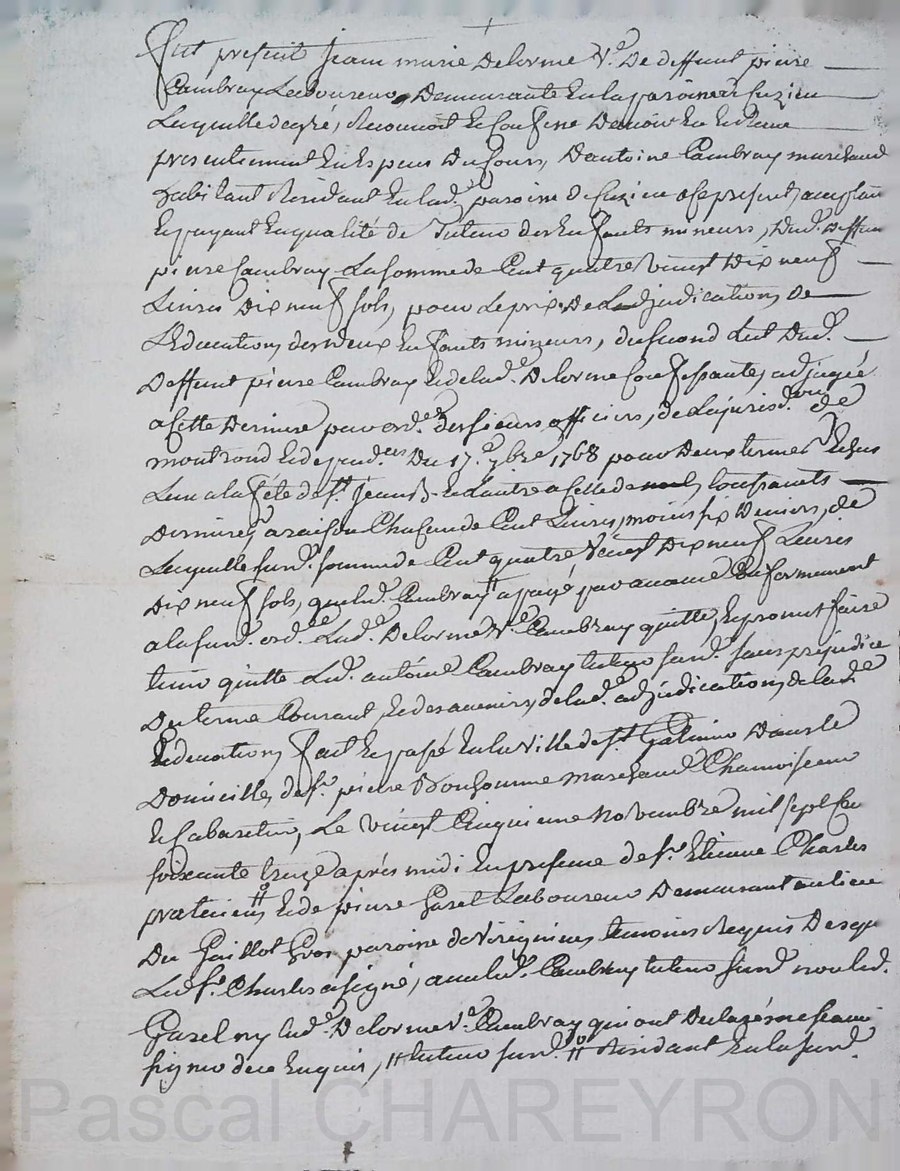 Fut present Jeanne marie Delorme V.e De deffunt pierre
Cambray Laboureur Demeurante En la paroisse de Cuzieu
Laquelle de gré, Reconnoit Et Confesse D'avoir Eu Et Reçu
presentement En Especes Du Cours, D'antoine Cambray marchand
habitant Residant En lad.e paroisse de Cuzieu a Ce present, acceptant
Et payant En qualité de Tuteur des Enfants mineurs, Dud. Deffunt
pierre Cambray La somme de Cent quatre vingt Dix neuf
Livres Dix neuf sols, pour Le prix De L'adjudication, de
L'Education, des deux Enfants mineurs, du second Lit Dud.
Deffunt pierre Cambray Et de lad.e Delorme Confessante, adjugée
a Cette Derniere par ord.ce des sieurs officiers, de La jurisd.on de
montrond Et dependces Du 17.e 7bre 1768 pour Deux termes Echus
L'un a la fête de S.t Jean B. Et L'autre a Celle de toussaints
Dernieres a raison Chacun de Cent Livres, moins six Deniers, de
Laquelle susd. somme de Cent quatre Vingt Dix neuf Livres
Dix neuf sols, que led. Cambray # a payé par avance Conformement
a la susd. ord.ce Lad.e Delorme V.e Cambray quitte, Et promet faire
tenir quitte Led. antoine Cambray tuteur susd. sans préjudice
Du terme Courant Et des avenirs, de lad.e adjudication, de lad.e
Education, fait Et passé En la Ville de S.t Galmier Dans le
Domicille, de s.r pierre Bonhomme marchand Chamoiseur
Et Cabaretier, Le vingt Cinquieme novembre mil sept Cen
soixante treize après midi En presence de s.r Etienne Charles
praticien # Et de pierre Gazel Laboureur Demeurant au lieu
Du Gros paroisse de Virigneux temoins Requis Desqu
Led. s.r Charles a signé, avec led. Cambray tuteur susd. non led.
Gazel ny lad.e Delorme V.e Cambray qui ont Declaré ne sçavoi
signer de ce Enquis, # tuteur susd. # Residant En la susd.
Pascal CHAREYRON